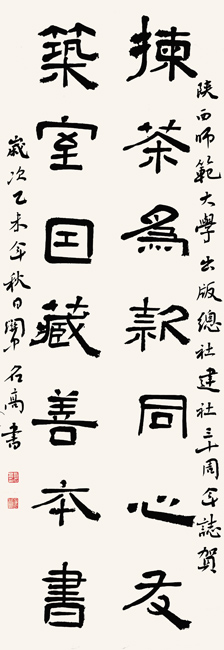 陝西師範大學出版總社建社三十周年誌賀
揀茶爲款同心友
築室因藏善本書
歲次乙未年秋日 高書